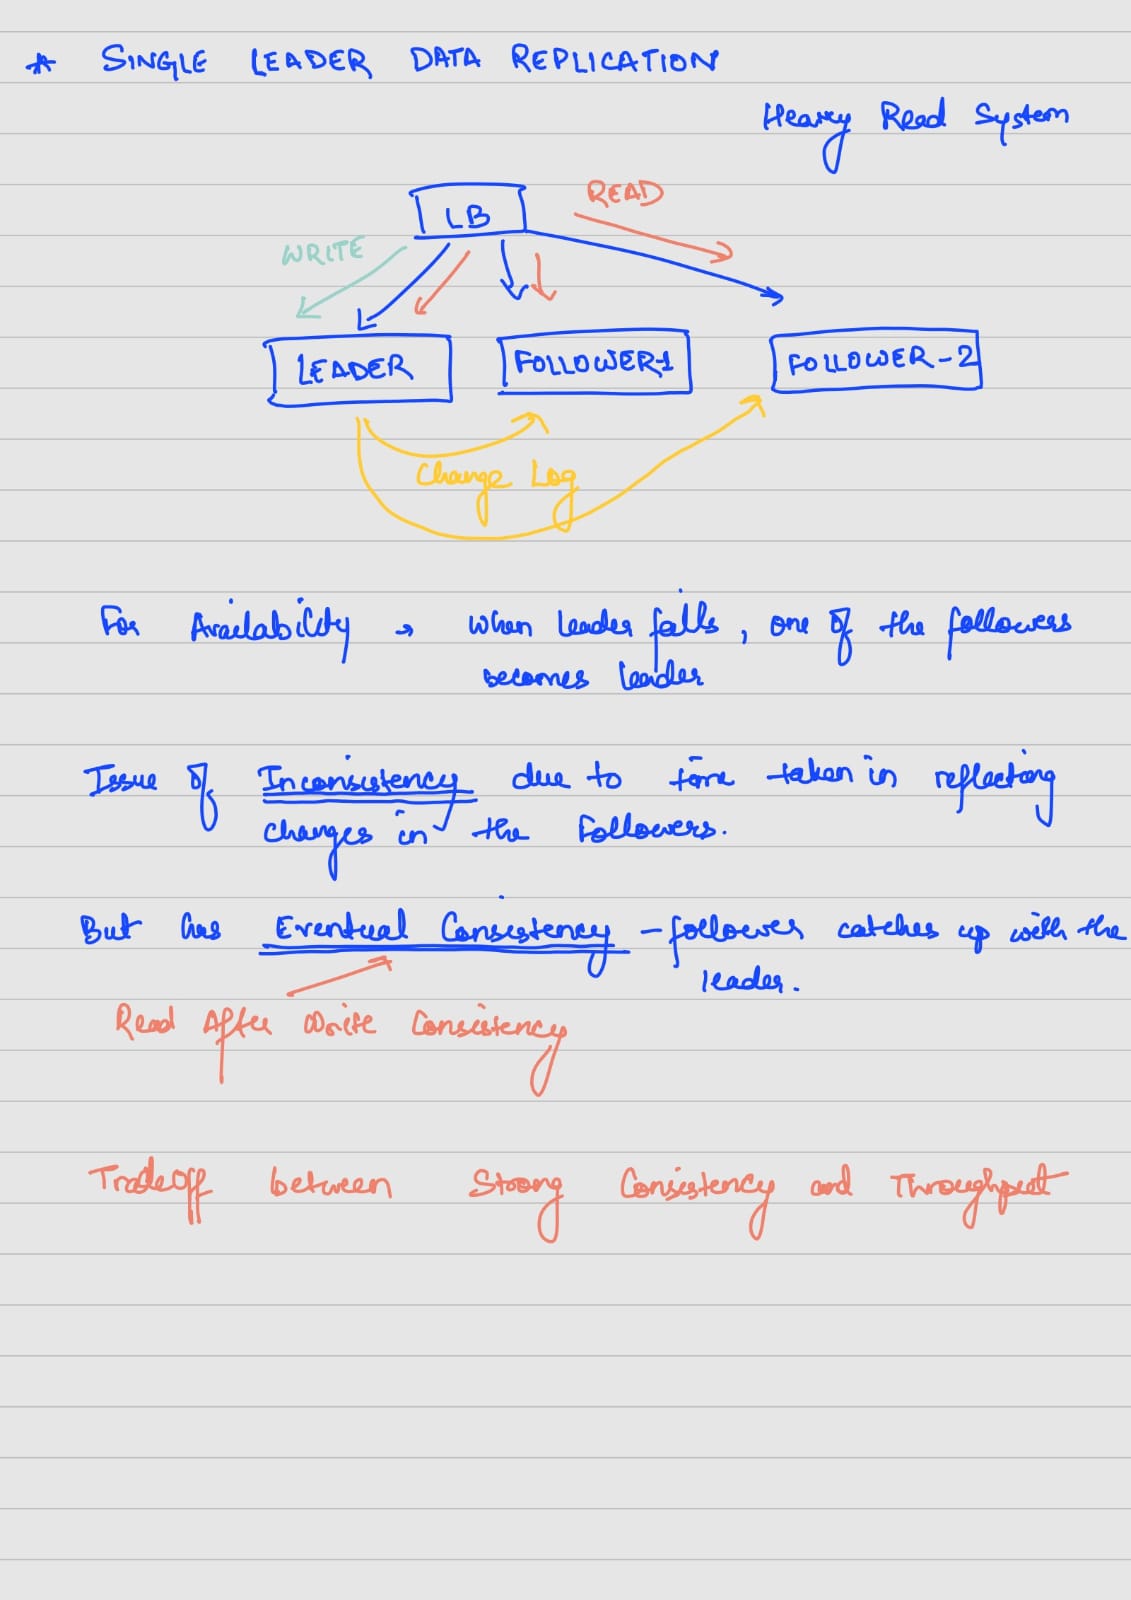 * SINGLE LEADER DATA REPLICATION
Heavy Read System
LB
READ
WRITE
LEADER
FOLLOWER-1
FOLLOWER-2
Change Log
For Availability → When leader falls, one of the followers
becomes leader
Issue of Inconsistency due to time taken in reflecting
changes in the followers.
But has Eventual Consistency - follower catches up with the
leader.
Read After Write Consistency
Tradeoff between Strong Consistency and Throughput